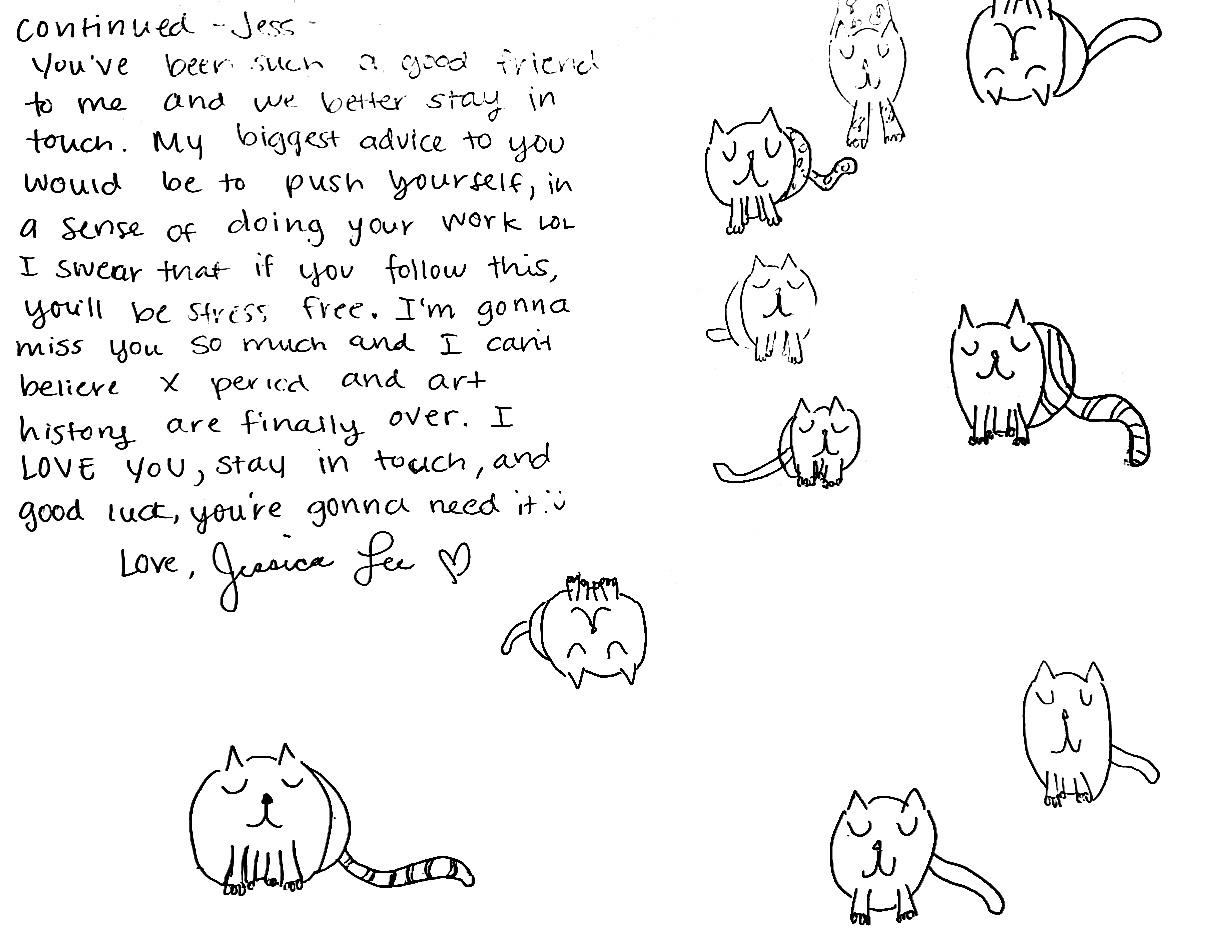 continued - Jess -
You've been such a good friend
to me and we better stay in
touch. My biggest advice to you
would be to push yourself, in
a sense of doing your work LOL
I swear that if you follow this,
you'll be stress free. I'm gonna
miss you so much and I can't
believe X period and art
history are finally over. I
LOVE YOU, stay in touch, and
good luck, you're gonna need it :)
Love, Jessica Lee ♡